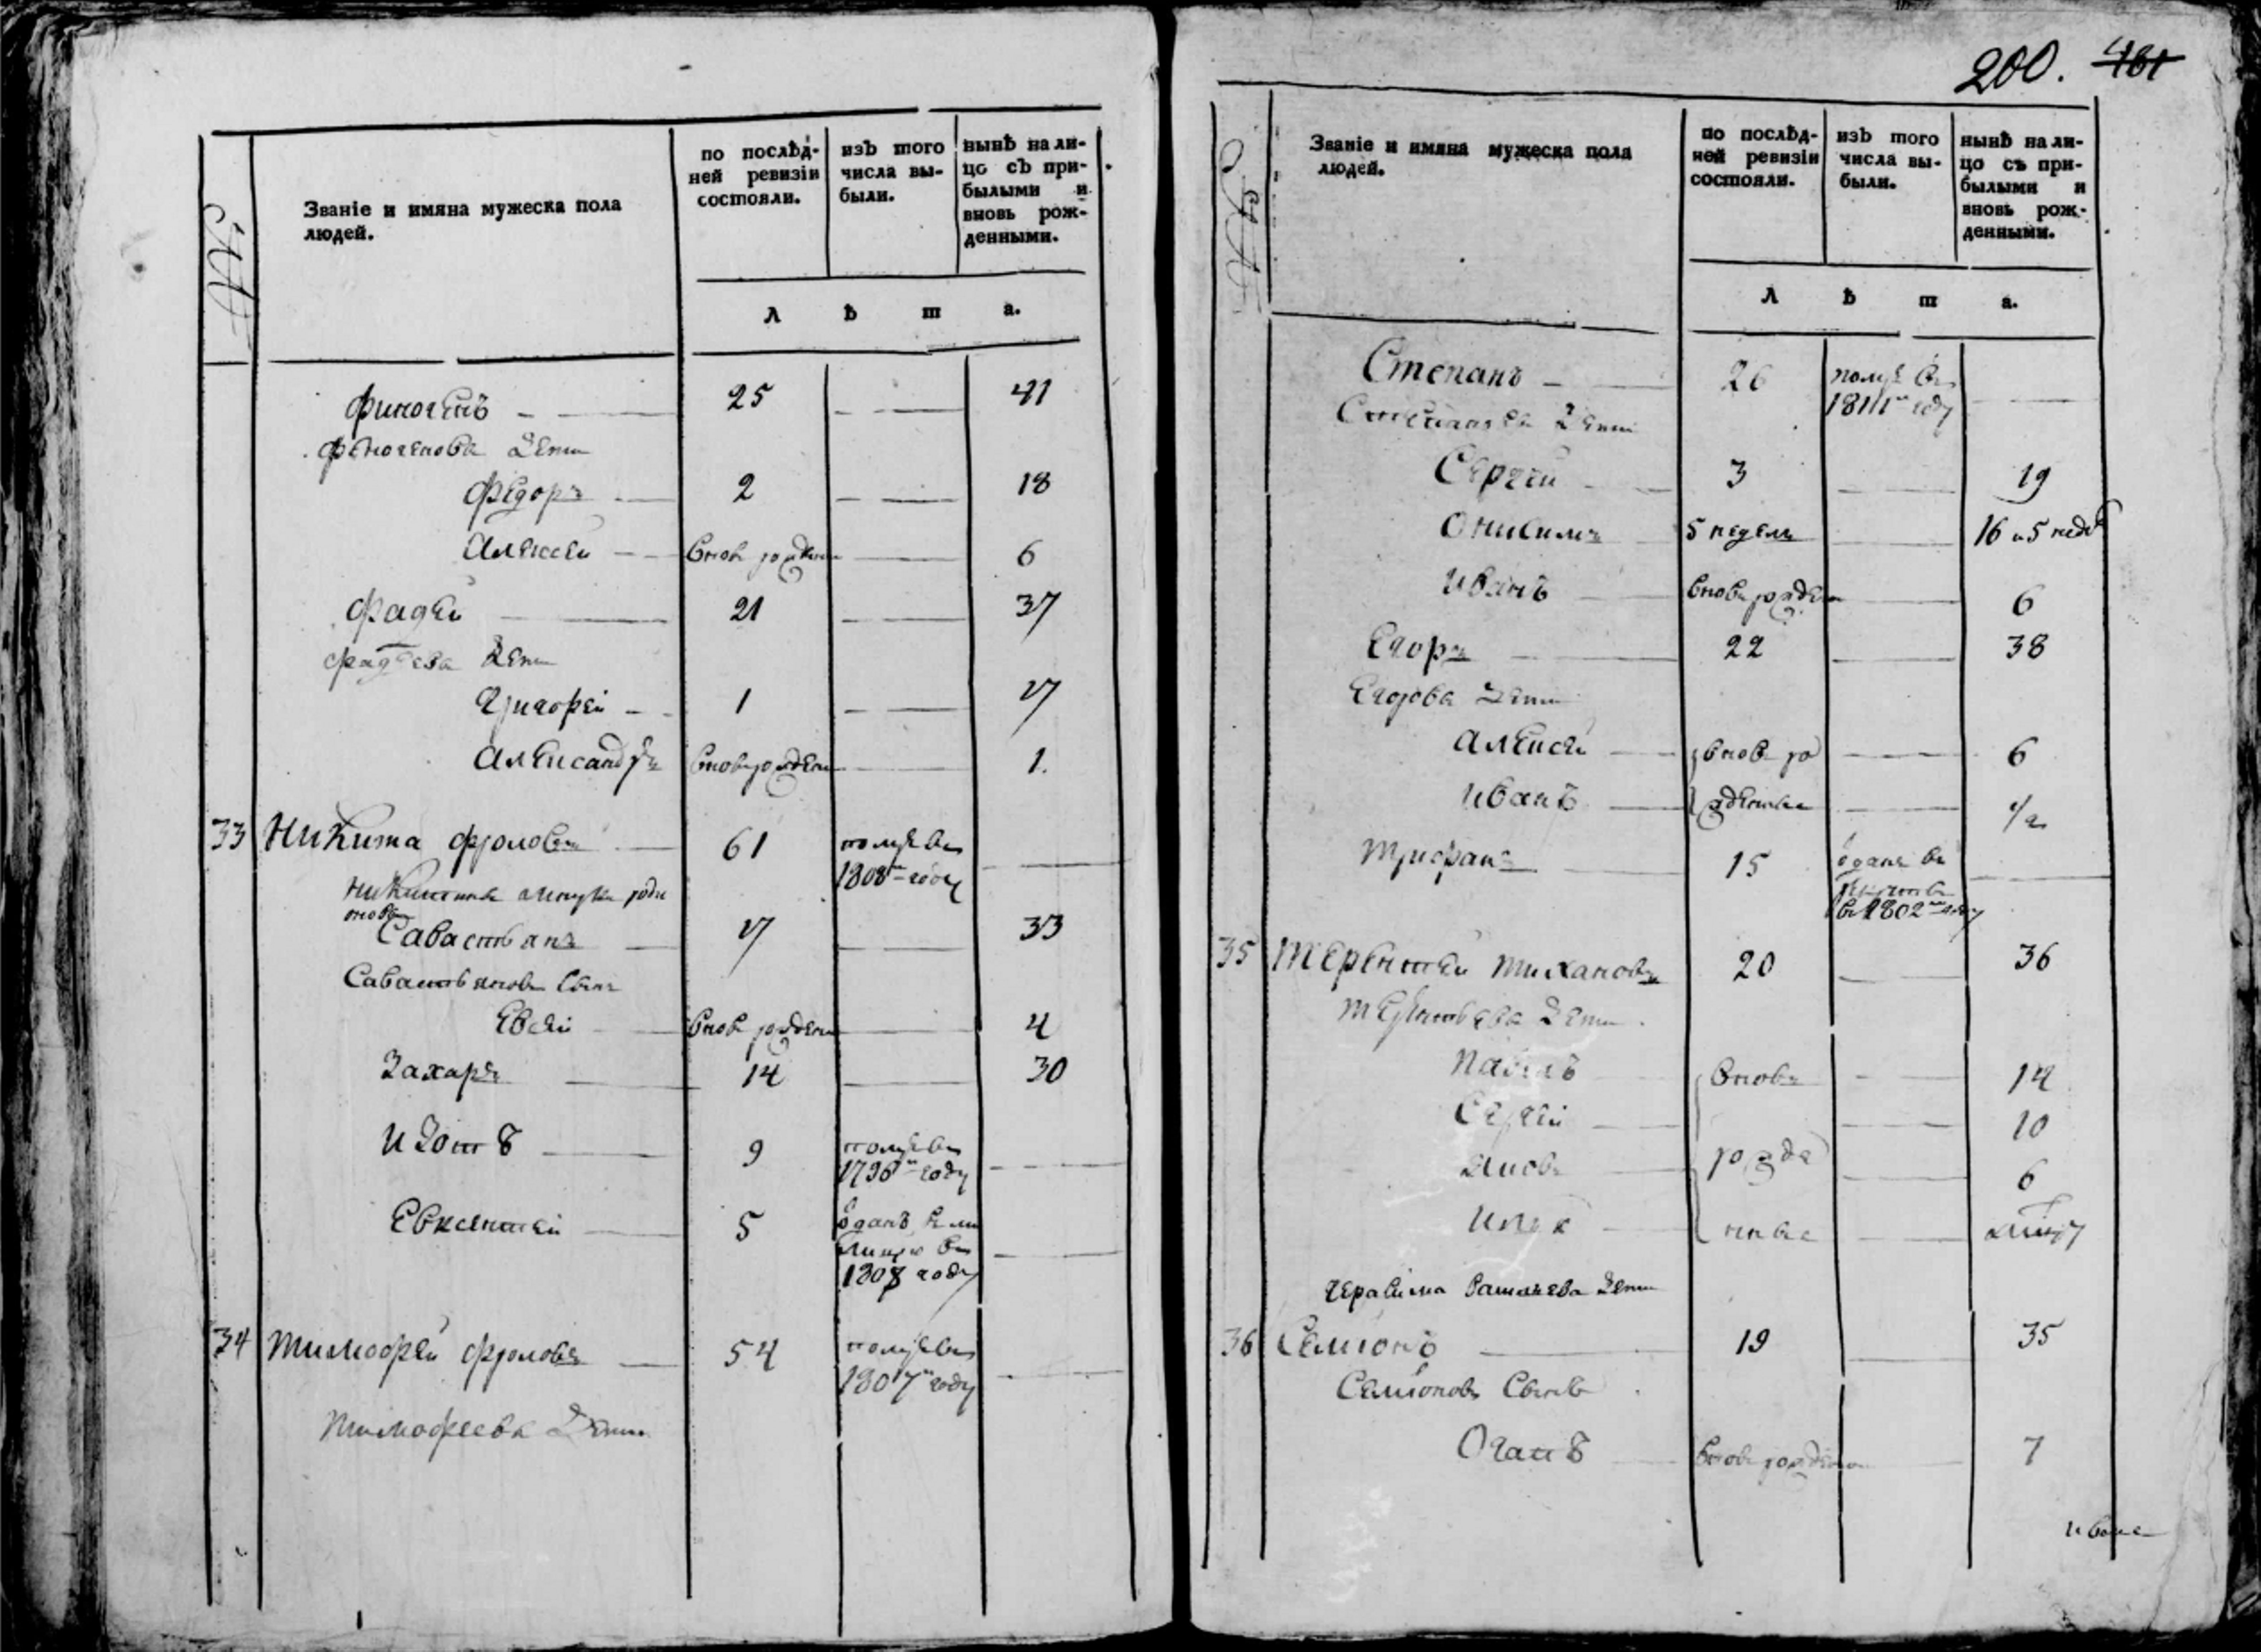 Званіе и имяна мужеска пола
людей.
по послѣд-
ней ревизіи
состояли.
изъ того
числа вы-
были.
нынѣ на ли-
цо съ при-
былыми и
вновь рож-
денными.
Л ѣ т а.
Финогенъ 25 41
Финогенова дети
Федоръ 2 18
Алексеи вновь рожденъ 6
Фадеи 21 37
Фадеева дети
Григореи 1 17
Александръ вновь рожденъ 1.
33 Никита Фроловъ 61 померъ въ
1808м году
Никитины внуки роди
оновы
Савастьянъ 17 33
Савастьяновъ сынъ
Евсеи вновь рожденъ 4
Захаръ 14 30
Изотъ 9 померъ въ
1796м году
Евксентеи 5 отданъ в ми
лицию въ
1808 году
34 Тимофеи Фроловъ 54 померъ въ
1807м году
Тимофеева дети
200. 461
Званіе и имяна мужеска пола
людей.
по послѣд-
ней ревизіи
состояли.
изъ того
числа вы-
были.
нынѣ на ли-
цо съ при-
былыми и
вновь рож-
денными.
Л ѣ т а.
Степанъ 26 померъ въ
1811м году
Степанова дети
Сергеи 3 19
Онисимъ 5 недель 16 и 5 недель
Иванъ вновь рожденъ 6
Егоръ 22 38
Егорова дети
Алексеи вновь ро 6
Иванъ жденные 1/2
Трифанъ 15 отданъ въ
рекруты
въ 1802м году
35 Терентеи Тихановъ 20 36
Терентьева дети
Павелъ вновь 14
Сергеи 10
Яковъ рожде 6
Илья нные
Герасима дети
36 Семионъ 19 35
Семионовъ сынъ
Огапъ вновь рожденъ 7